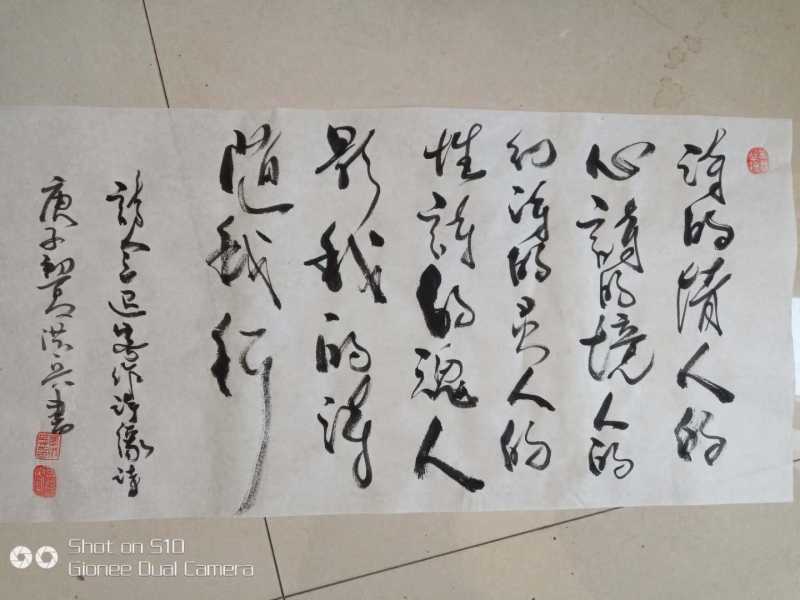 诗的情人的
心詩的境人的
幻诗的灵人的
性詩的魂人
影我的诗
随我行
詩人作诗
庚子初夏洪兵书
Shot on S10
Gionee Dual Camera